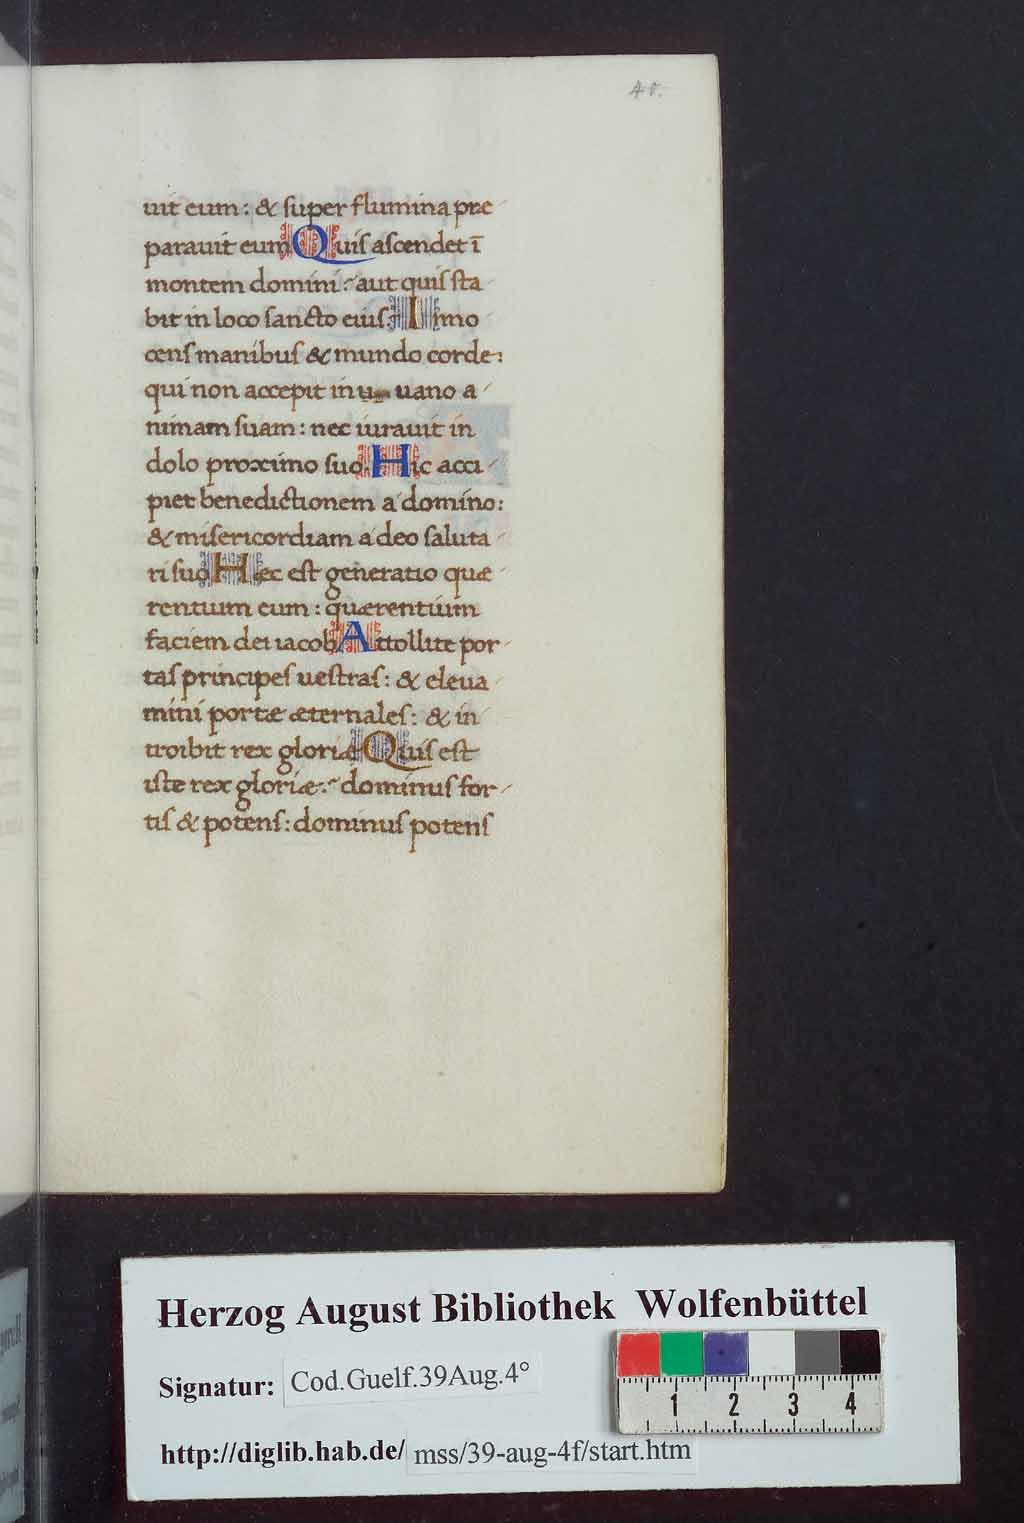 40.
uit eum: & super flumina pre
parauit eum Quis ascendet ī
montem domini: aut quis sta
bit in loco sancto eius: Inno
cens manibus & mundo corde:
qui non accepit in u uano a
nimam suam: nec iurauit in
dolo proximo suo. Hic acci
piet benedictionem a domino:
& misericordiam a deo saluta
ri suo Hec est generatio quæ
rentium eum: quærentium
faciem dei iacob Attollite por
tas principes uestras: & eleua
mini portæ æternales: & in
troibit rex gloriæ Quis est
iste rex gloriæ: dominus for
tis & potens: dominus potens
Herzog August Bibliothek Wolfenbüttel
Signatur: Cod.Guelf.39Aug.4°
1 2 3 4
http://diglib.hab.de/ mss/39-aug-4f/start.htm